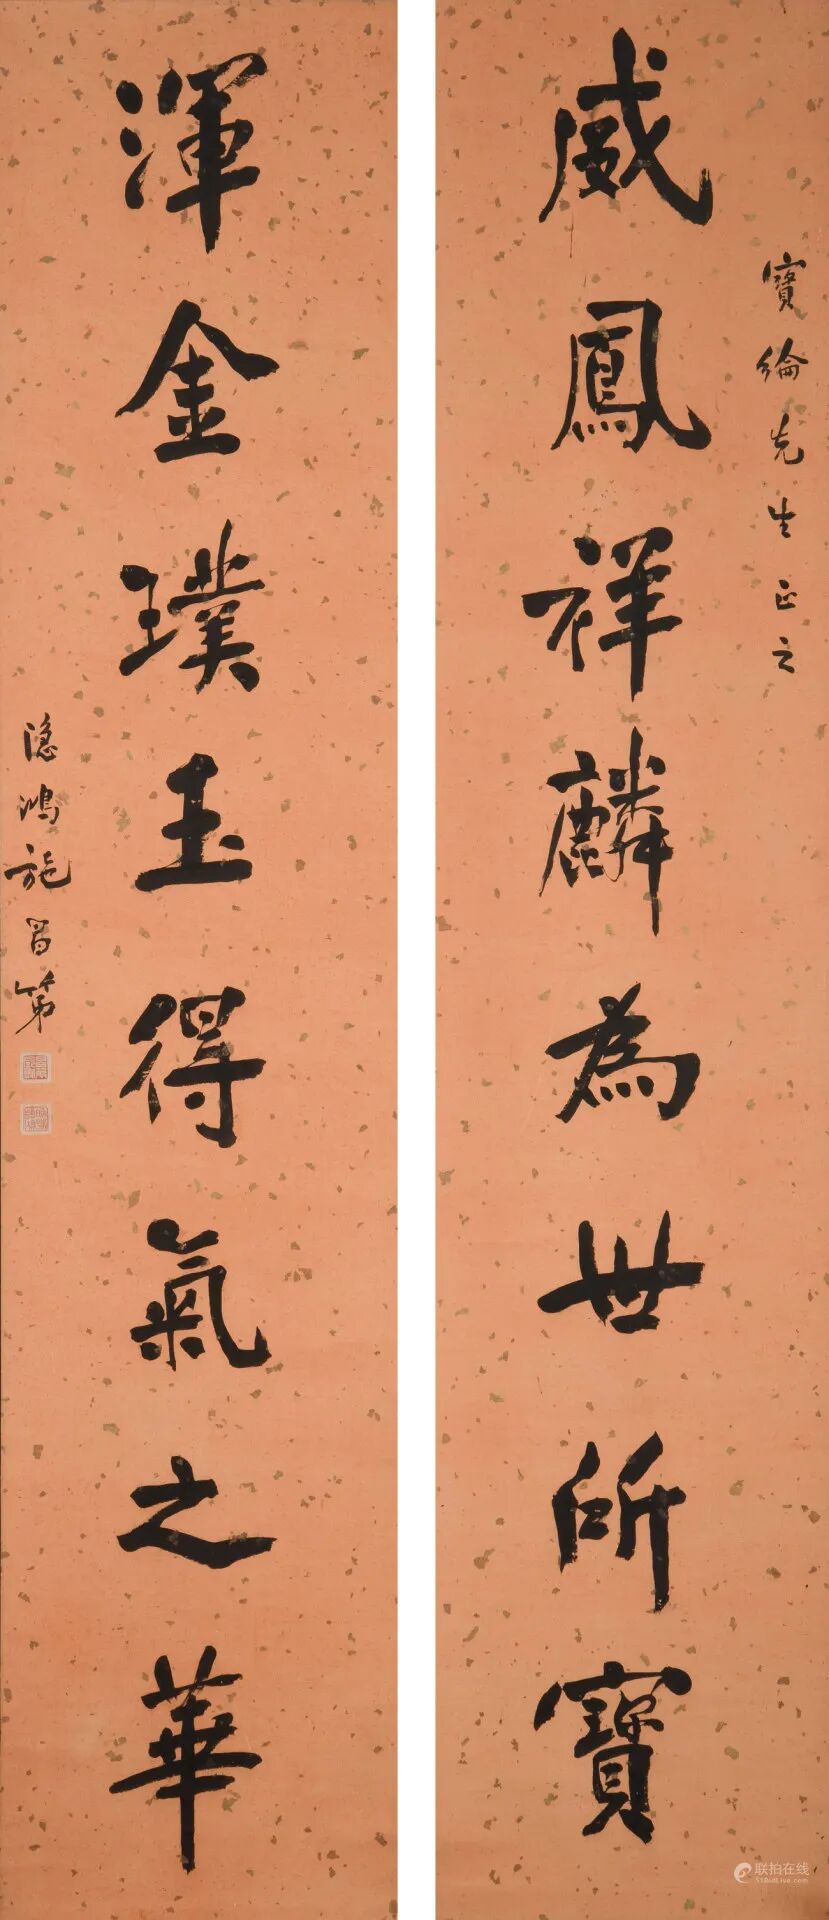 寶綸先生正之
威鳳祥麟為世所寶
渾金璞玉得氣之華
隱鴻施昌第
联拍在线
51BidLive.com